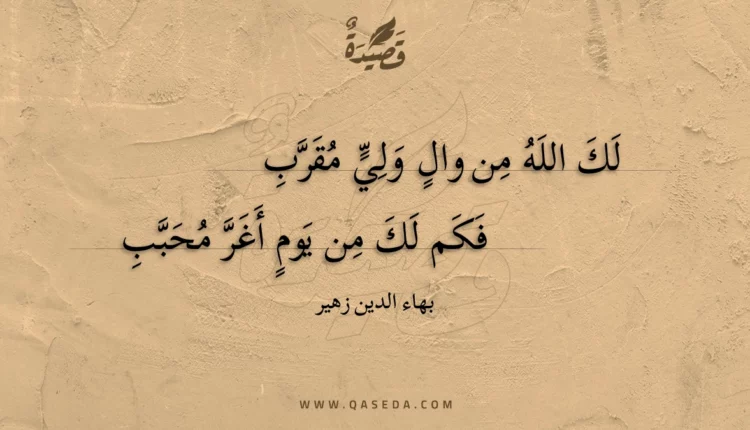 قَصِيدَةٌ
لَكَ اللَهُ مِن والٍ وَلِيٍّ مُقَرَّبِ
فَكَم لَكَ مِن يَومٍ أَغَرَّ مُحَبَّبِ
بهاء الدين زهير
WWW.QASEDA.COM